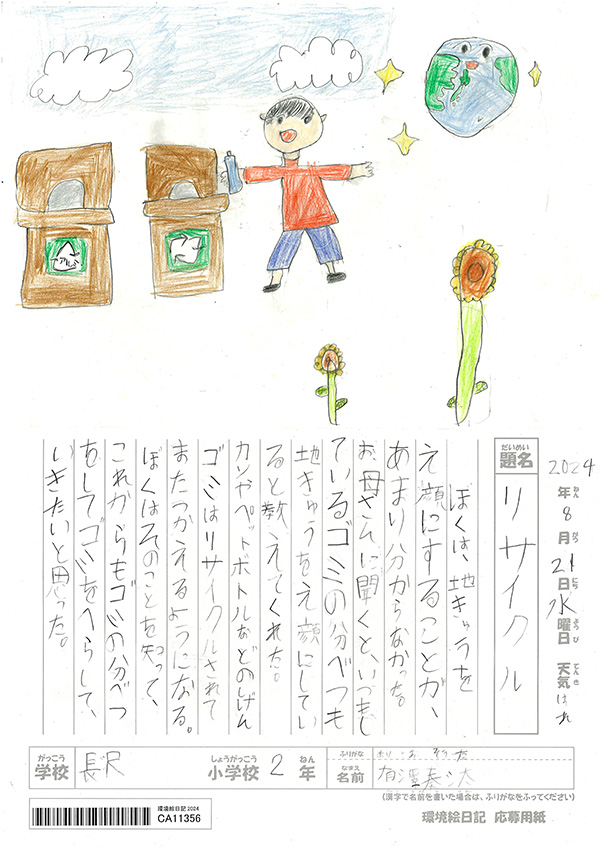 2024年8月21日水曜日 天気 はれ
ねん がつ にち ようび てんき
だいめい
題名
リサイクル
ぼくは、地きゅうを
え顔にすることが、
あまり分からなかった。
お母さんに聞くと、いつもし
ているゴミの分べつも
地きゅうをえ顔にしてい
ると教えてくれた。
カンやペットボトルなどのしげん
ゴミはリサイクルされて
またつかえるようになる。
ぼくはそのことを知って、
これからもゴミの分べつ
をしてゴミをへらして、
いきたいと思った。
アルミ
がっこう
学校
長沢
しょうがっこう
小学校
2
ねん
年
ふりがな
なまえ
名前
(漢字で名前を書いた場合は、ふりがなをふってください)
環境絵日記2024
CA11356
環境絵日記 応募用紙